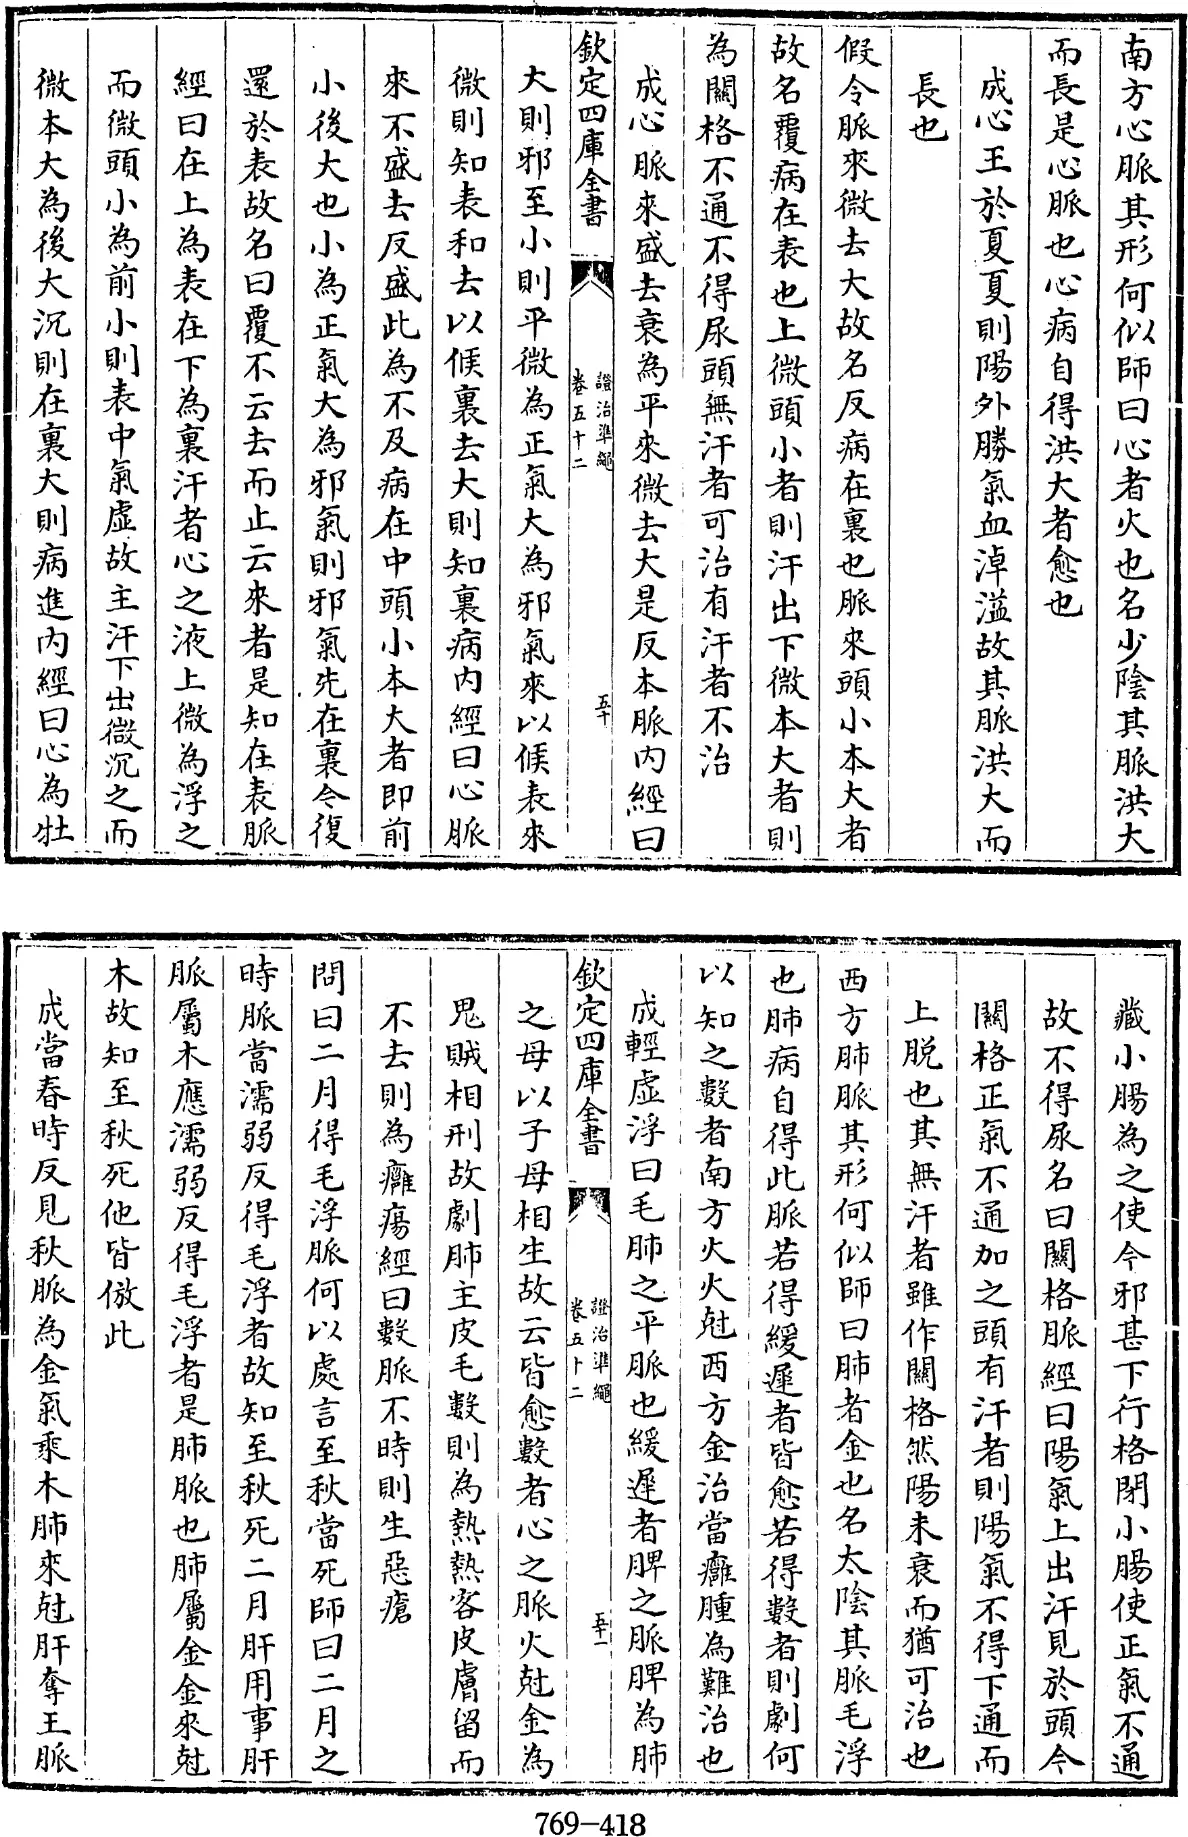 南方心脈其形何似師曰心者火也名少陰其脈洪大
而長是心脈也心病自得洪大者愈也
成心王於夏夏則陽外勝氣血淖溢故其脈洪大而
長也
假令脈來微去大故名反病在裏也脈來頭小本大者
故名覆病在表也上微頭小者則汗出下微本大者則
為關格不通不得尿頭無汗者可治有汗者不治
成心脈來盛去衰為平來微去大是反本脈内經曰
欽定四庫全書
證治準繩
卷五十二
五十
大則邪至小則平微為正氣大為邪氣來以候表來
微則知表和去以候裏去大則知裏病内經曰心脈
來不盛去反盛此為不及病在中頭小本大者即前
小後大也小為正氣大為邪氣則邪氣先在裏今復
還於表故名曰覆不云去而止云來者是知在表脈
經曰在上為表在下為裏汗者心之液上微為浮之
而微頭小為前小則表中氣虛故主汗下出微沉之而
微本大為後大沉則在裏大則病進内經曰心為牡
藏小腸為之使今邪甚下行格閉小腸使正氣不通
故不得尿名曰關格脈經曰陽氣上出汗見於頭今
關格正氣不通加之頭有汗者則陽氣不得下通而
上脱也其無汗者雖作關格然陽未衰而猶可治也
西方肺脈其形何似師曰肺者金也名太陰其脈毛浮
也肺病自得此脈若得緩遲者皆愈若得數者則劇何
以知之數者南方火火尅西方金治當癰腫為難治也
成輕虛浮曰毛肺之平脈也緩遲者脾之脈脾為肺
欽定四庫全書
證治準繩
卷五十二
五十一
之母以子母相生故云皆愈數者心之脈火尅金為
鬼賊相刑故劇肺主皮毛數則為熱熱客皮膚留而
不去則為癰瘍經曰數脈不時則生惡瘡
問曰二月得毛浮脈何以處言至秋當死師曰二月之
時脈當濡弱反得毛浮者故知至秋死二月肝用事肝
脈屬木應濡弱反得毛浮者是肺脈也肺屬金金來尅
木故知至秋死他皆倣此
成當春時反見秋脈為金氣乘木肺來尅肝奪王脈
769-418